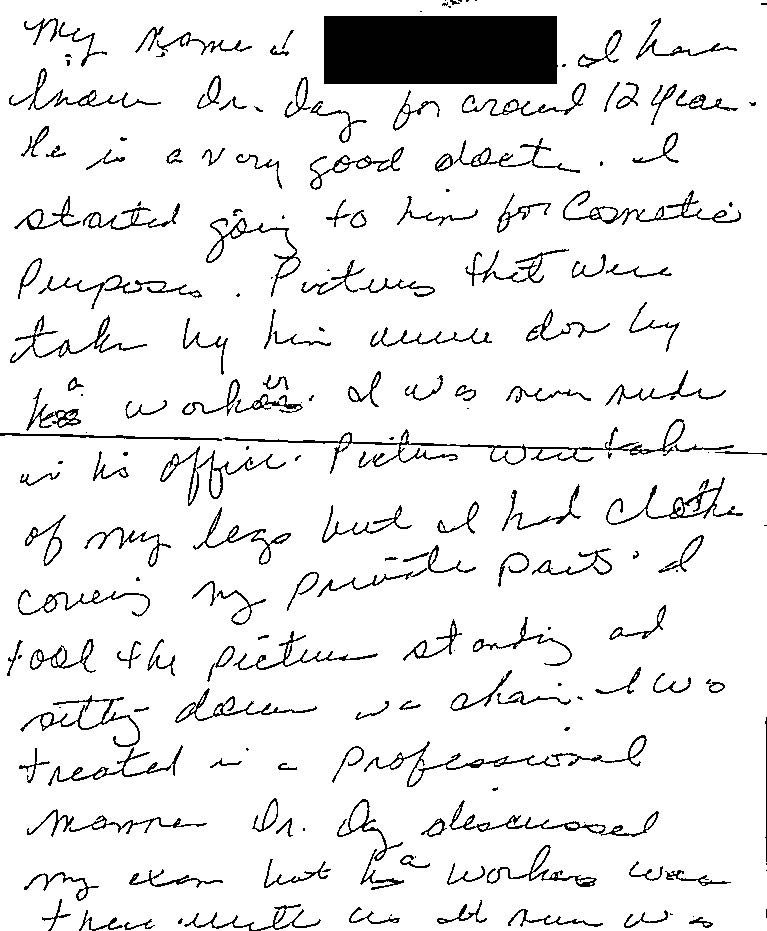 My name is . I have
known Dr. Day for around 12 year.
He is a very good doctor. I
started going to him for Cosmetic
Purposes. Pictures that were
take by him were don by
a worker. I was never nude
in his office. Pictures were taken
of my legs but I had clothe
covering my private parts. I
took the picture standing and
sitting down in a chair. I was
treated in a professional
manner Dr. Day discussed
my exam but a worker was
there with us at